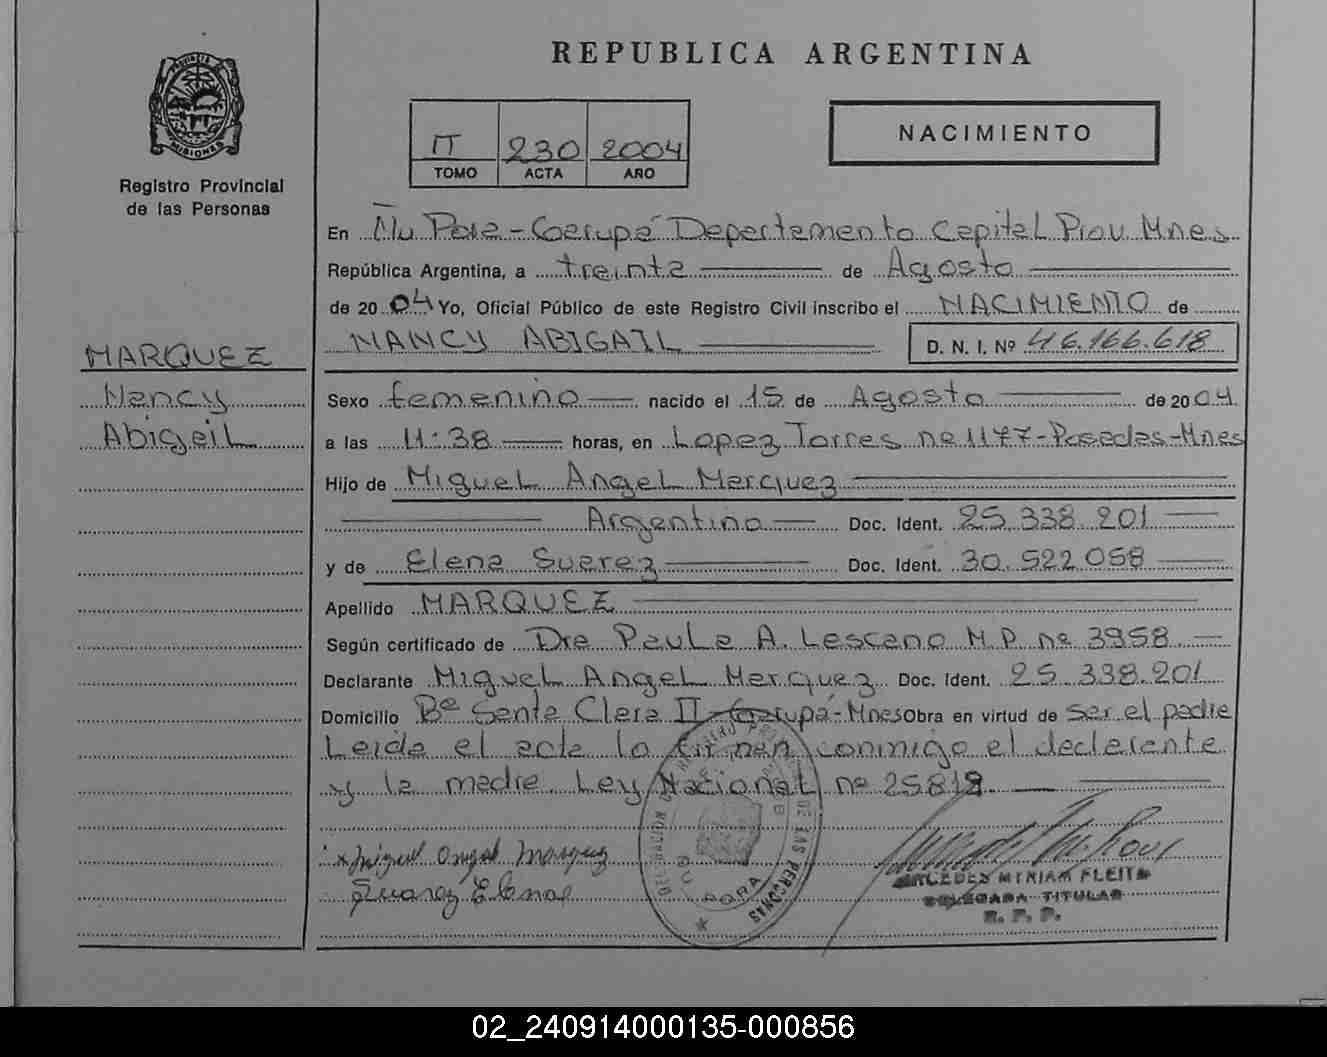 REPUBLICA ARGENTINA
PROVINCIA DE MISIONES
Registro Provincial
de las Personas
II 230 2004
TOMO ACTA AÑO
NACIMIENTO
En Ñu Pora - Garupá Departamento Capital Prov. Mnes
República Argentina, a treinta de Agosto
de 2004 Yo, Oficial Público de este Registro Civil inscribo el NACIMIENTO de
NANCY ABIGAIL D. N. I. Nº 46.166.618
MARQUEZ
Nancy
Abigail
Sexo femenino nacido el 15 de Agosto de 2004
a las 11:38 horas, en Lopez Torres nº 1177 - Posadas - Mnes
Hijo de Miguel Angel Marquez
Argentino Doc. Ident. 25.338.201
y de Elena Suarez Doc. Ident. 30.522.058
Apellido MARQUEZ
Según certificado de Dra Paula A. Lescano M.P. nº 3958
Declarante Miguel Angel Marquez Doc. Ident. 25.338.201
Domicilio Bº Santa Clara II - Garupá - Mnes Obra en virtud de ser el padre
Leida el acta la firman conmigo el declarante
y la madre. Ley Nacional nº 25819.
x Miguel Angel Marquez
Suarez Elena
DE LAS PERSONAS
ÑU PORA
MERCEDES MYRIAM FLEITA
DELEGADA TITULAR
R. P. P.
02_240914000135-000856